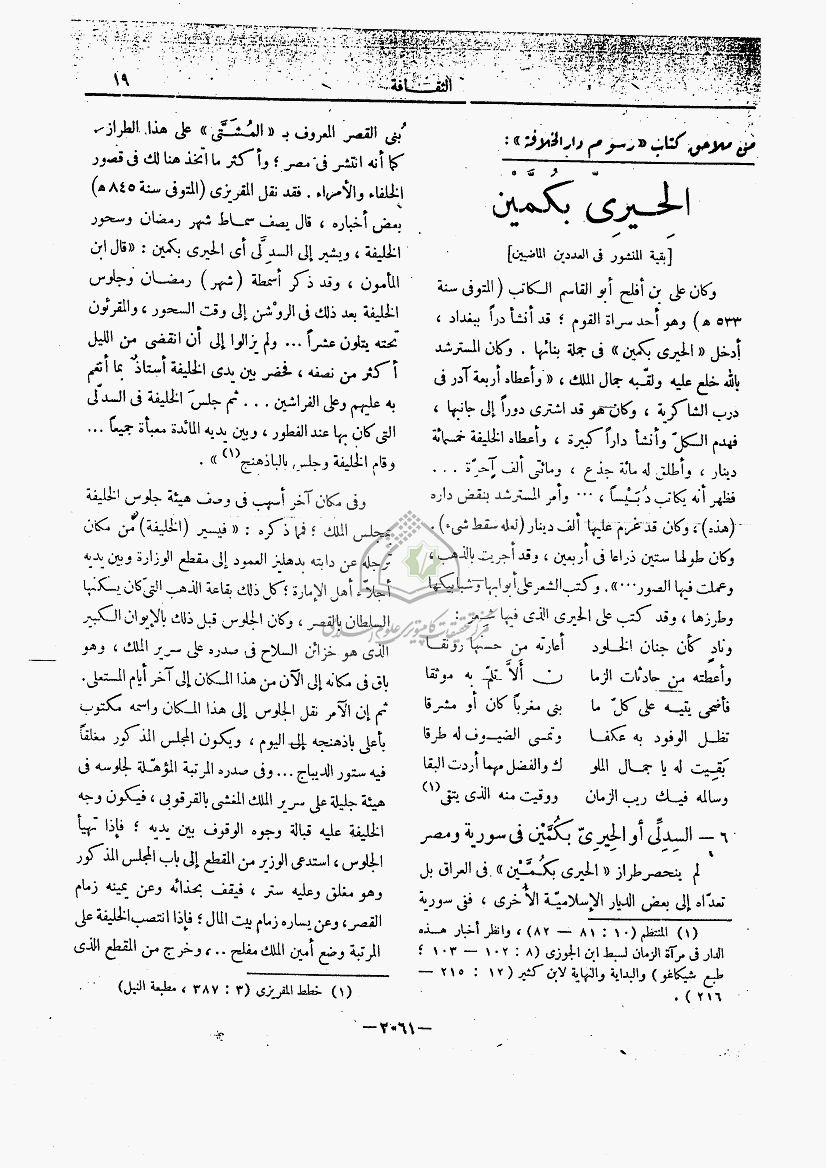 الثقافة
١٩
من ملاحق كتاب «رسوم دار الخلافة»:
الحِيرِىّ بِكُمَّيْن
[بقية المنشور فى العددين الماضيين]
وكان على بن أفلح أبو القاسم الكاتب (المتوفى سنة
٥٣٣ هـ) وهو أحد سراة القوم ؛ قد أنشأ دراً ببغداد ،
أدخل «الحيرى بكمين» فى جملة بنائها . وكان المسترشد
بالله خلع عليه ولقبه جمال الملك ، «وأعطاه أربعة آدر فى
درب الشاكرية ، وكان هو قد اشترى دوراً إلى جانبها ،
فهدم الكلّ وأنشأ داراً كبيرة ، وأعطاه الخليفة خمسمائة
دينار ، وأطلق له مائة جذع ، ومائتى ألف آجرّة . . .
فظهر أنه يكاتب دُبَيْساً ، ... وأمر المسترشد بنقض داره
(هذه) ، وكان قد غرم عليها ألف دينار (لعله سقط شىء) .
وكان طولها ستين ذراعا فى أربعين ، وقد أجريت بالذهب ،
وعملت فيها الصور ...» . وكتب الشعر على أبوابها وشبابيكها
وطرزها ، وقد كتب على الحيرى الذى فيها شعر :
ونادٍ كأن جنان الخلود أعارته من حسنها رونقا
وأعطته من حادثات الزما ن ألاَّ تلمّ به موثقا
فأضحى يتيه على كلّ ما بنى مغرباً كان أو مشرقا
تظل الوفود به عكفا وتمسى الضيوف له طرقا
بقيت له يا جمال الملو ك والفضل مهما أردت البقا
وسالمه فيك ريب الزمان ووقيت منه الذى يتقى (١)
٦ — السِدِلَّى أو الحِيرىّ بكُمَّيْن فى سورية ومصر
لم ينحصر طراز «الحيرى بكُمَّيْن» فى العراق بل
تعداه إلى بعض الديار الإسلاميّة الأُخرى ، ففى سورية
(١) المنتظم (١٠ : ٨١ — ٨٢) ، وانظر أخبار هذه
الدار فى مرآة الزمان لسبط ابن الجوزى (٨ : ١٠٢ — ١٠٣ ؛
طبع شيكاغو) والبداية والنهاية لابن كثير (١٢ : ٢١٥ —
٢١٦) .
بُنى القصر المعروف بـ «المُشَتَّى» على هذا الطراز
كما أنه انتشر فى مصر ؛ وأكثر ما اتخذ هنالك فى قصور
الخلفاء والأمراء . فقد نقل المقريزى (المتوفى سنة ٨٤٥ هـ)
بعض أخباره ، قال يصف سماط شهر رمضان وسحور
الخليفة ، ويشير إلى السدلَّى أى الحيرى بكمين : «قال ابن
المأمون ، وقد ذكر أسمطة (شهر) رمضان وجلوس
الخليفة بعد ذلك فى الروشن إلى وقت السحور ، والمقرئون
تحته يتلون عشراً ... ولم يزالوا إلى أن انقضى من الليل
أكثر من نصفه ، فحضر بين يدى الخليفة أستاذٌ بما أنعم
به عليهم وعلى الفراشين . . . ثم جلسَ الخليفة فى السدلّى
التى كان بها عند الفطور ، وبين يديه المائدة معبأة جميعاً ...
وقام الخليفة وجلس بالباذهنج (١) » .
وفى مكان آخر أسهب فى وصف هيئة جلوس الخليفة
بمجلس الملك ؛ فما ذكره : « فيسير (الخليفة) من مكان
ترجله عن دابته بدهليز العمود إلى مقطع الوزارة وبين يديه
أجلاّء أهل الإمارة ؛ كل ذلك بقاعة الذهب التى كان يسكنها
السلطان بالقصر ، وكان الجلوس قبل ذلك بالإيوان الكبير
الذى هو خزائن السلاح فى صدره على سرير الملك ، وهو
باق فى مكانه إلى الآن من هذا المكان إلى آخر أيام المستعلى.
ثم إن الآمر نقل الجلوس إلى هذا المكان واسمه مكتوب
بأعلى باذهنجه إلى اليوم ، ويكون المجلس المذكور مغلقاً
فيه ستور الديباج ... وفى صدره المرتبة المؤهلة لجلوسه فى
هيئة جليلة على سرير الملك المغشى بالقرقوبى ، فيكون وجه
الخليفة عليه قبالة وجوه الوقوف بين يديه ؛ فإذا تهيأ
الجلوس ، استدعى الوزير من المقطع إلى باب المجلس المذكور
وهو مغلق وعليه ستر ، فيقف بحذائه وعن يمينه زمام
القصر ، وعن يساره زمام بيت المال ؛ فإذا انتصب الخليفة على
المرتبة وضع أمين الملك مفلح .. ، وخرج من المقطع الذى
(١) خطط المقريزى (٣ : ٣٨٧ ، مطبعة النيل)
—٢٠٦١—
مرکز تحقیقات کامپیوتری علوم اسلامی